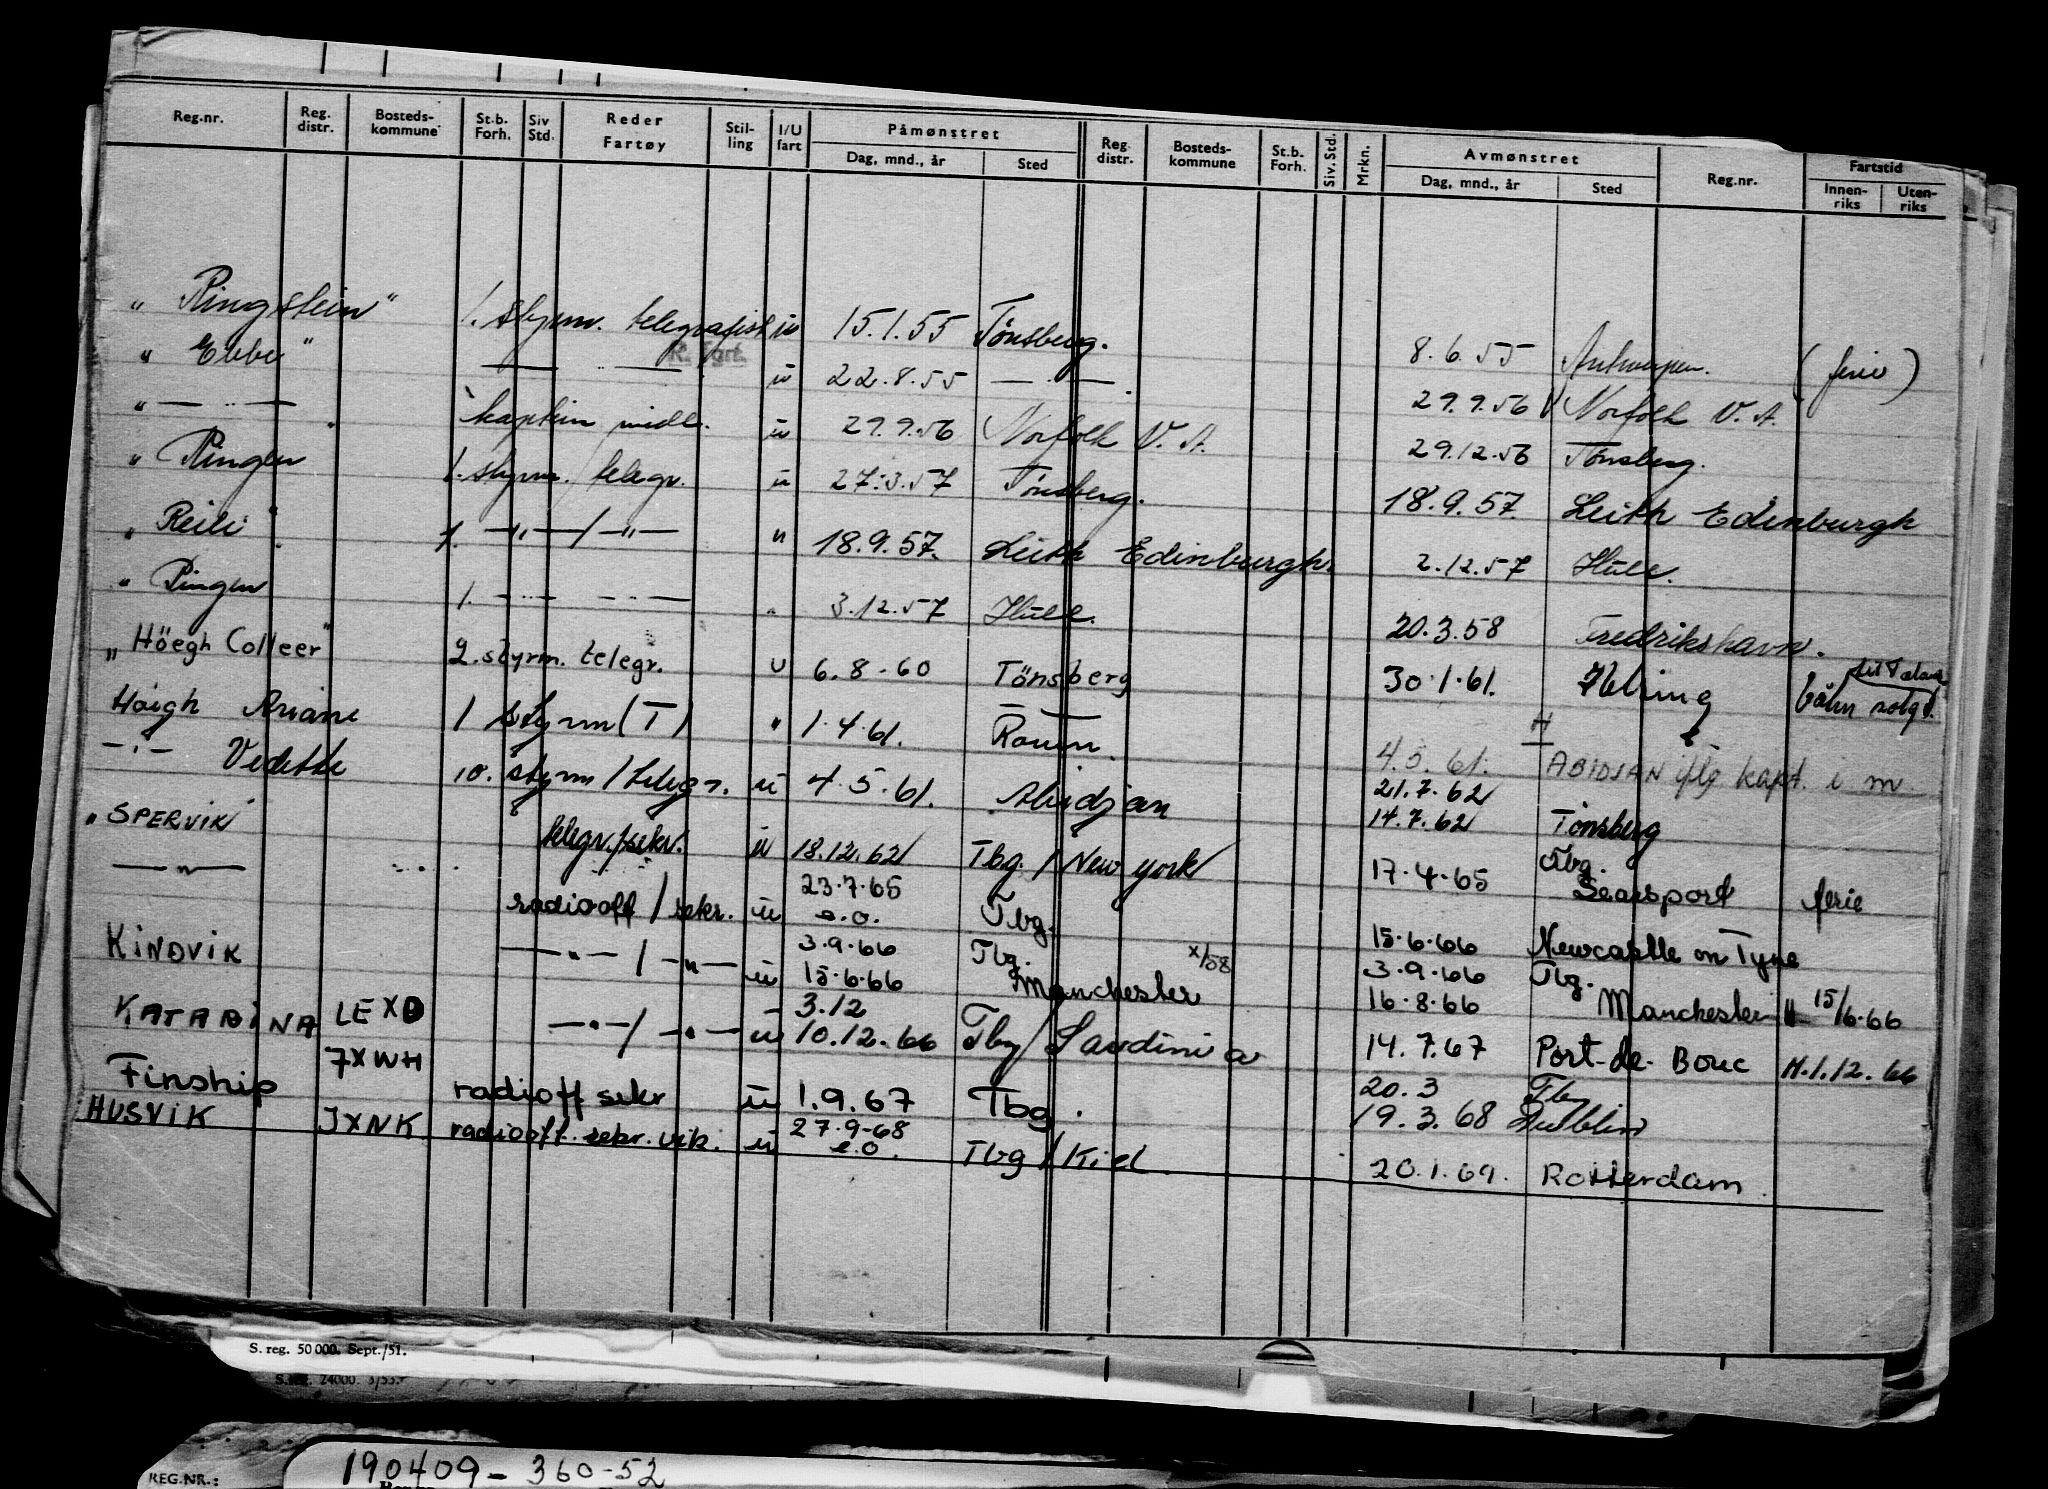 Reg.nr. Reg. distr. Bosteds-kommune St.b. Forh. Siv Std. Reder Fartøy Stil-ling I/U fart Påmønstret Dag, mnd., år Sted Reg distr. Bosteds-kommune St.b. Forh. Siv. Std. Mrkn. Avmønstret Dag, mnd., år Sted Reg.nr. Fartstid Innen-riks Uten-riks
" Ringstein " 1. styrm. telegrafist u 15.1.55 Tönsberg. 8.6.55 Antwerpen. (ferie)
R. Fart.
" Ebbe " — " — u 22.8.55 — " — 29.9.56 Norfolk V.A.
" — " — kaptein midl. u 29.9.56 Norfolk V.A. 29.12.56 Tönsberg.
" Ringen 1. styrm. / telegr. u 27.3.57 Tönsberg. 18.9.57. Leith Edinburgh
" Reili " 1. — " — / — " — u 18.9.57. Leith Edinburgh. 2.12.57 Hull.
" Ringen 1. — " — — " — " 3.12.57 Hull. 20.3.58 Fredrikshavn.
" Höegh Colleer " 2. styrm. telegr. u 6.8.60 Tönsberg 30.1.61.
Höigh Ariane 1 styrm (T) " 1.4.61. Rouen 4.5.61. ABIDJAN kapt. i m
— " — Vedette styrm / telegr. u 4.5.61. Abidjan 21.7.62
14.7.62 Tönsberg
" SPERVIK telegr./sekr. u 18.12.62 Tbg. / New York 17.4.65 Tbg. Searsport ferie
— " — radiooff / sekr. u 23.7.65 e.o. Tbg. 15.6.66 Newcastle on Tyne
KINDVIK — " — / — " — u 3.9.66 15.6.66 Tbg. Manchester x/58 3.9.66 Tbg.
16.8.66 Manchester 15/6.66
KATARINA LEXD — " — / — " — u 3.12 10.12.66 Tbg / Sardinia 14.7.67 Port-de-Bouc H.1.12.66
Finship 7XWH radioff sekr u 1.9.67 Tbg. 20.3 Tbg
19.3.68 Dublin
HUSVIK JXNK radiooff. sekr. vik. u 27.9.68 e.o. Tbg / Kiel 20.1.69. Rotterdam
S. reg. 50 000. Sept./51.
24000. 3/53.
REG.NR.: 190409-360-52